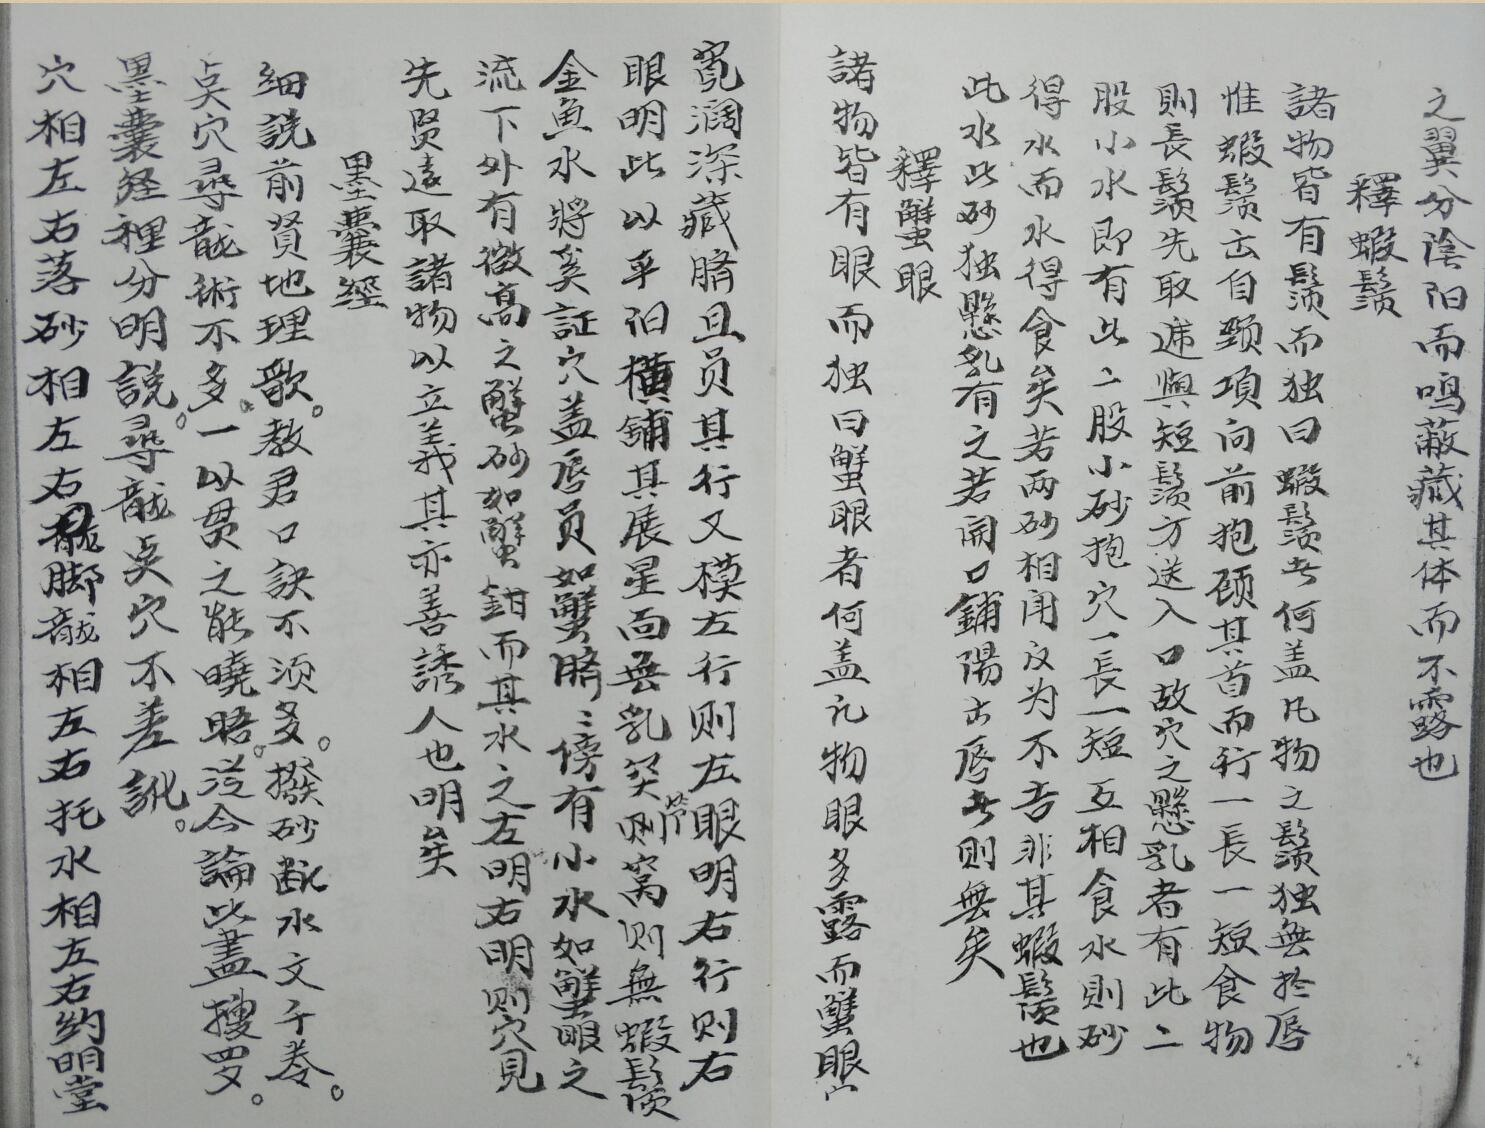 之翼分陰阳而鸣蔽藏其体而不露也
釋蝦鬚
諸物皆有鬚而独曰蝦鬚者何盖凡物之鬚独無於唇
惟蝦鬚出自頸項向前抱顾其首而行一長一短食物
則長鬚先取遞與短鬚方送入口故穴之懸乳者有此二
股小水即有此二股小砂抱穴一長一短互相食水則砂
得水而水得食矣若两砂相闭反为不吉非其蝦鬚也
此水此砂独懸乳有之若開口鋪陽出唇者則無矣
釋蟹眼
諸物皆有眼而独曰蟹眼者何盖凡物眼多露而蟹眼宀
寬濶深藏臍且员其行又模左行则左眼明右行则右
眼明此以平洎橫鋪其展星面無乳突则窩则無蝦鬚
金魚水將奚証穴盖唇员如蟹臍〻傍有小水如蟹眼之
流下外有微高之蟹砂如蟹鉗而其水之左明右明则穴見
先贤遠取諸物以立義其亦善誘人也明矣
墨囊經
细說前贤地理歌。教君口訣不须多。撥砂断水文千卷。
点穴尋龍術不多。一以贯之能曉悟。从今論此盡搜罗。
墨囊经裡分明說。尋龍点穴不差訛。
穴相左右落砂相左右龍脚龍相左右托水相左右約明堂